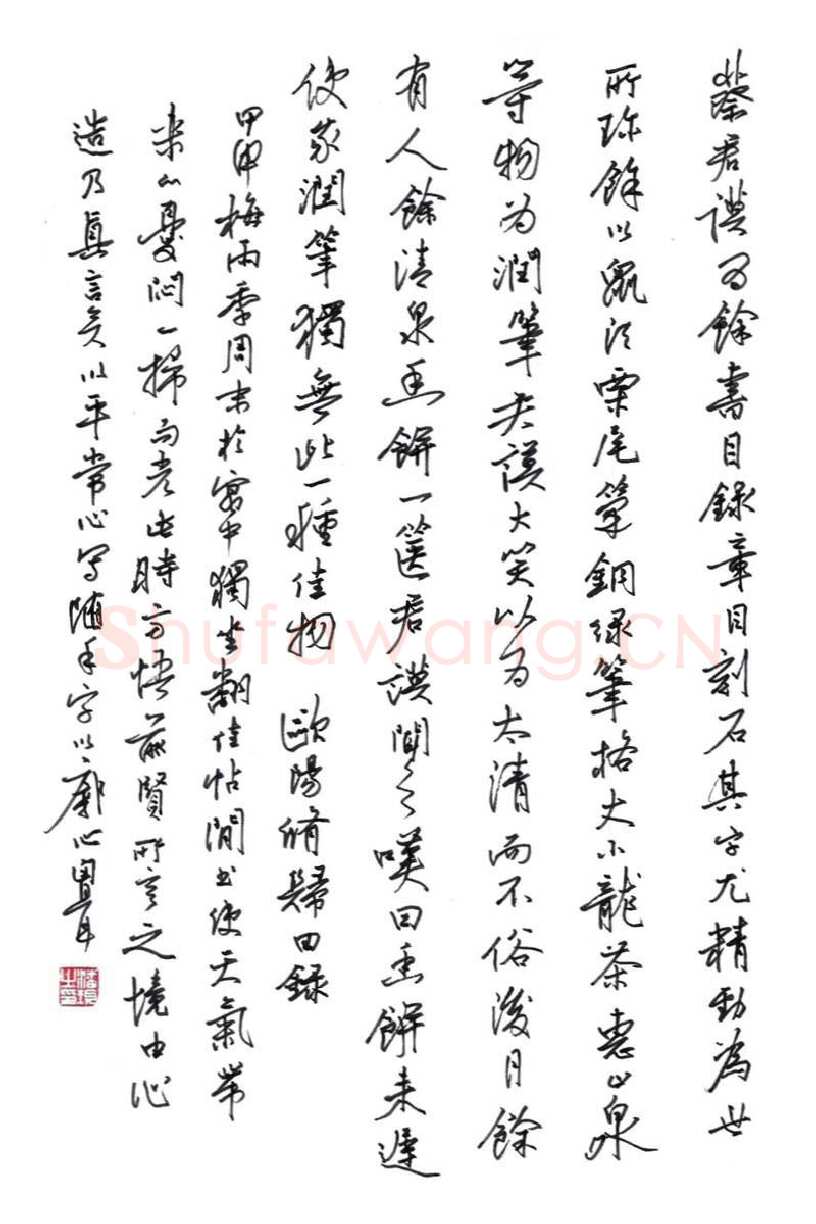 蔡君謨為餘書目錄章目刻石其字尤精勁為世
所珍餘以鼠須栗尾筆銅綠筆格大小龍茶惠山泉
等物為潤筆君謨大笑以為太清而不俗後月餘
有人餘清泉香餅一篋君謨聞之嘆曰香餅來遲
使我潤筆獨無此一種佳物 歐陽脩歸田錄
甲申梅雨季周末於窗中獨坐翻佳帖閒書使天氣帶
來的憂悶一掃而光此時方悟前賢所言之境由心
造乃真言矣以平常心寫隨手字以廓心胃耳
Shufawang.CN